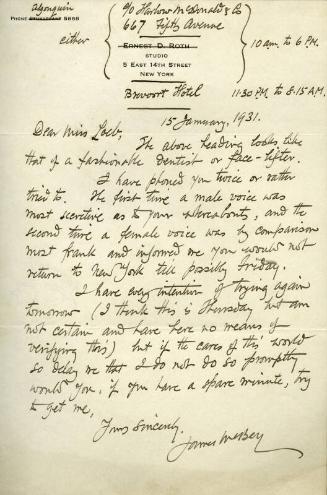 Algonquin
PHONE STUYVESANT 5658
either
c/o Harlow McDonald & Co
667 Fifth Avenue
10 am. to 6 P.M.
ERNEST D. ROTH
STUDIO
5 EAST 14TH STREET
NEW YORK
Brevoort Hotel
11:30 P.M. to 8.15 A.M.
15 January, 1931.
Dear Miss Loeb,
The above heading looks like
that of a fashionable dentist or face-lifter.
I have phoned you twice or rather
tried to. The first time a male voice was
most secretive as to your whereabouts, and the
second time a female voice was by comparison
most frank and informed me you would not
return to New York till possibly Friday.
I have every intention of trying again
tomorrow (I think this is Thursday but am
not certain and have here no means of
verifying this) but if the cares of this world
so delay me that I do not do so promptly
would you, if you have a spare minute, try
to get me,
Yours sincerely,
James McBey